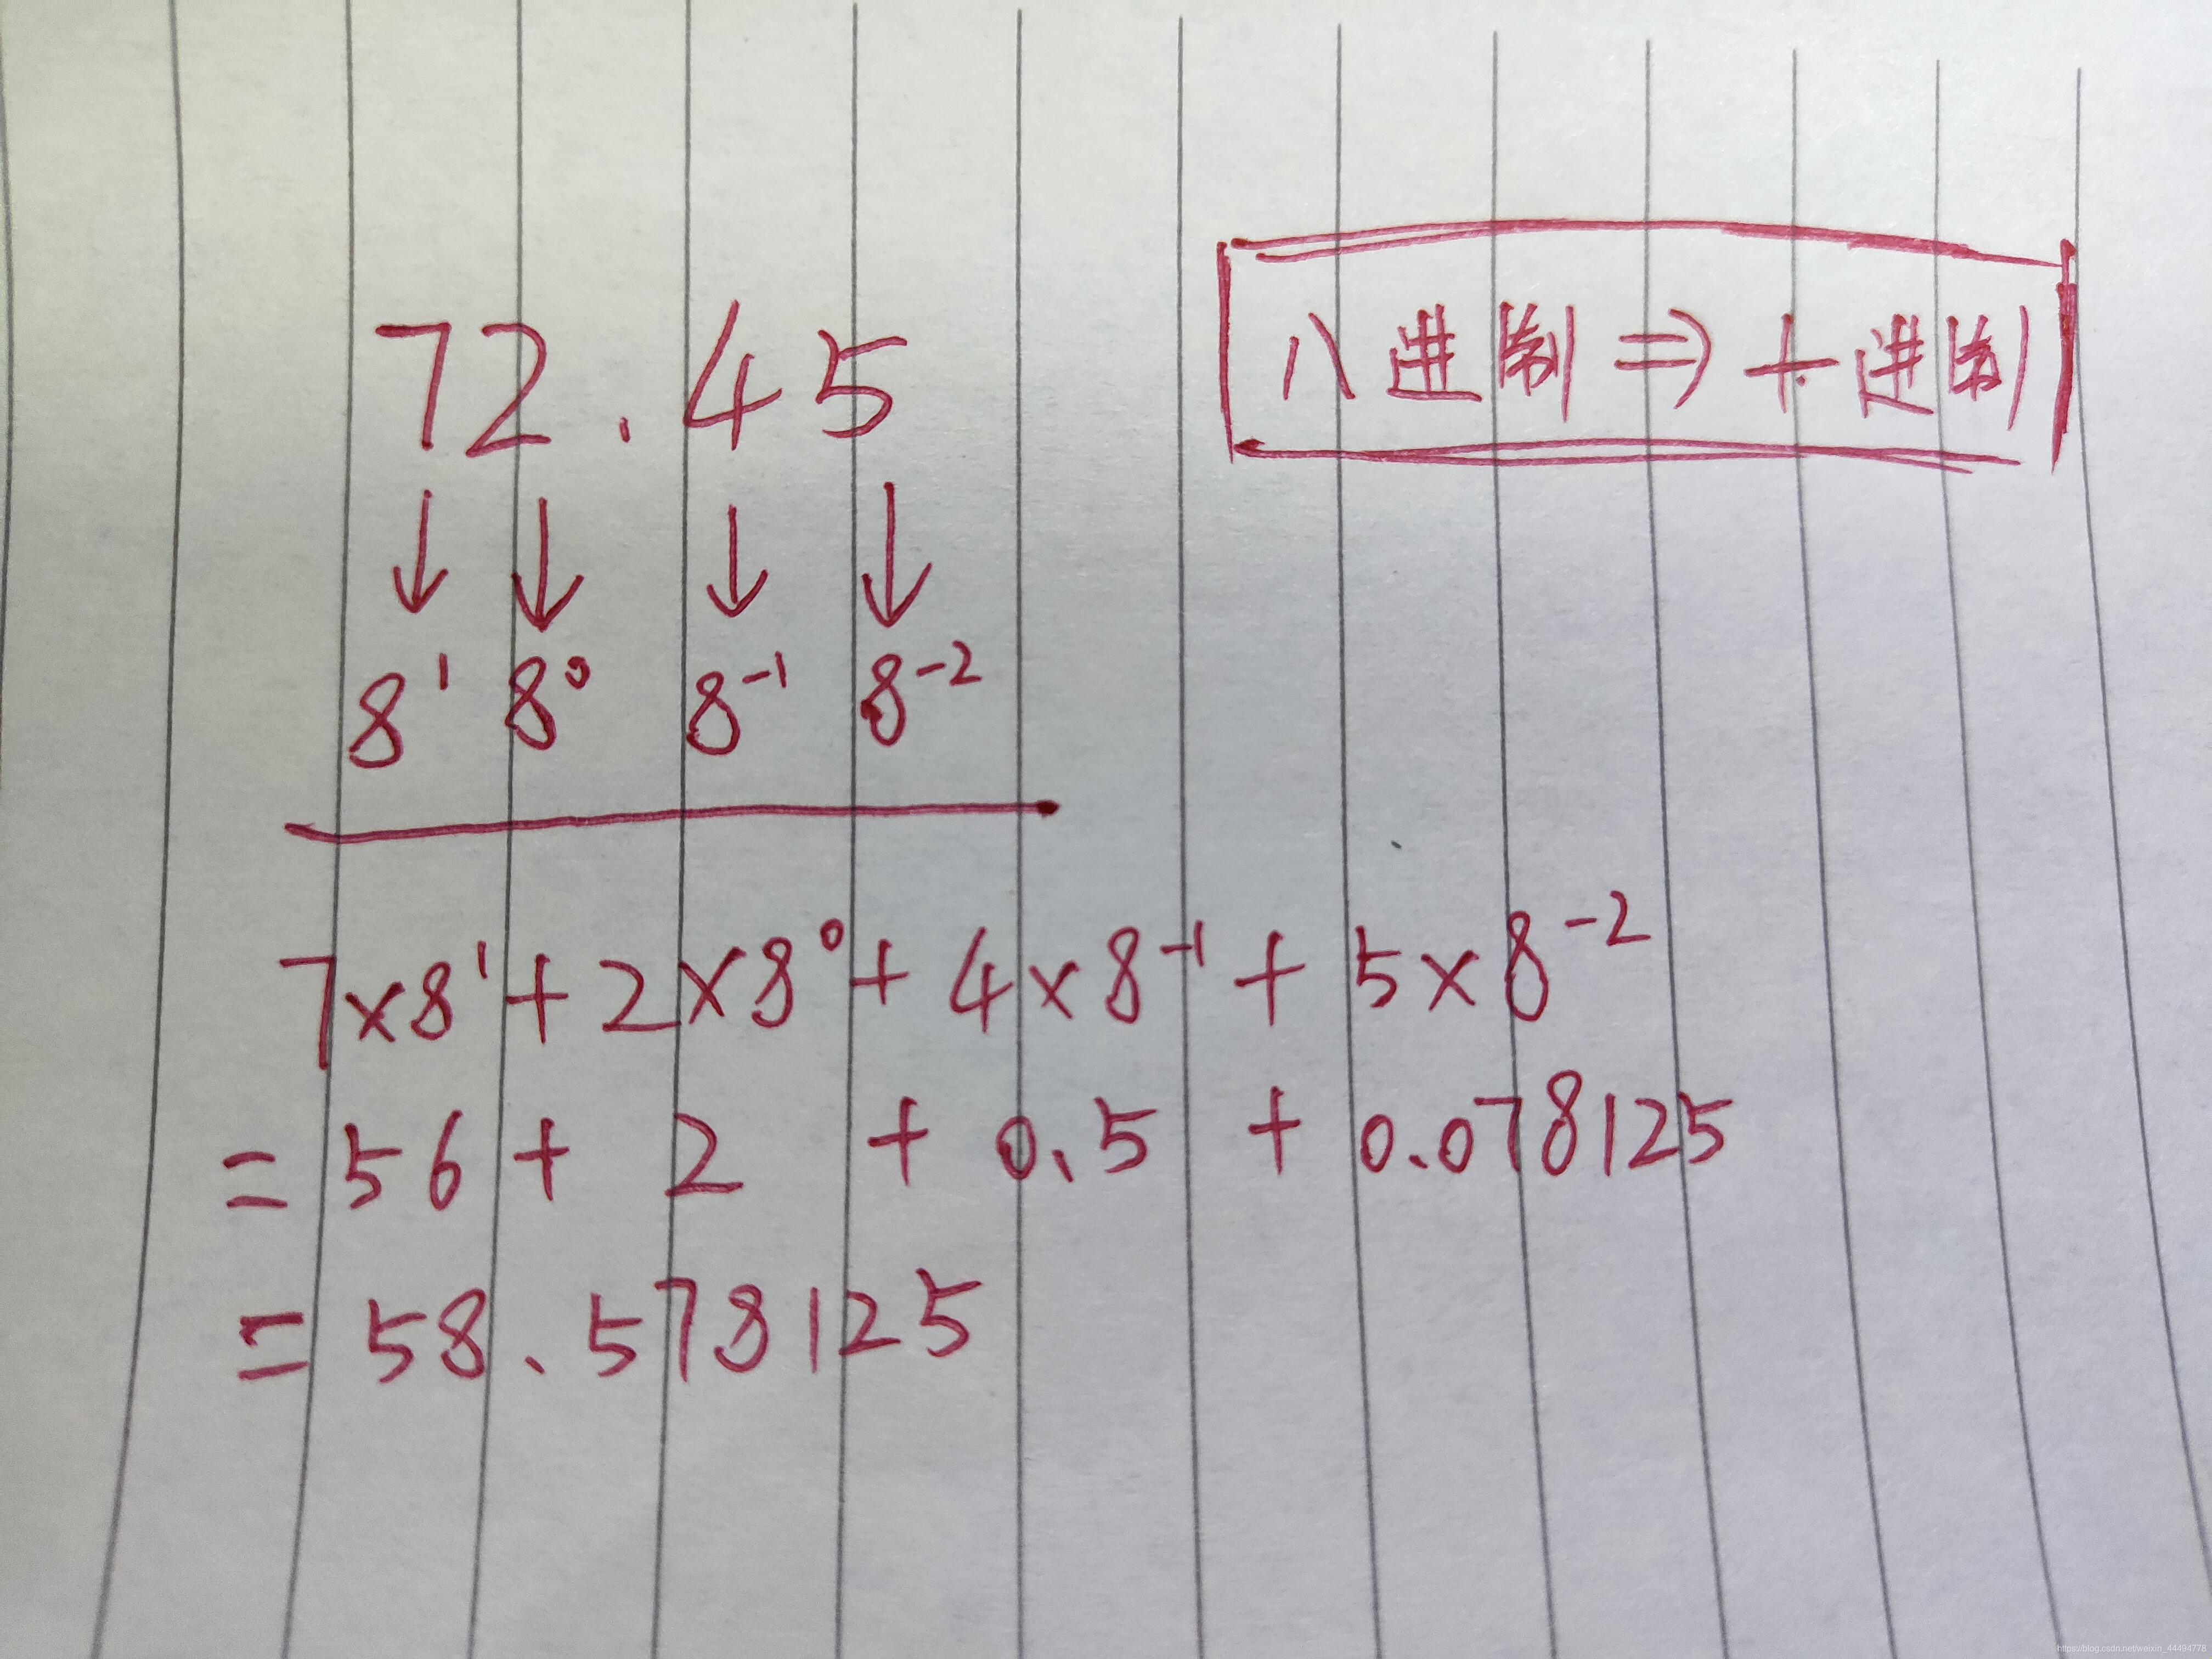 72.45
八进制⇒十进制
↓ ↓ ↓ ↓
8¹ 8⁰ 8⁻¹ 8⁻²
7×8¹+2×8⁰+4×8⁻¹+5×8⁻²
=56+2+0.5+0.078125
=58.578125
https://blog.csdn.net/weixin_44494778